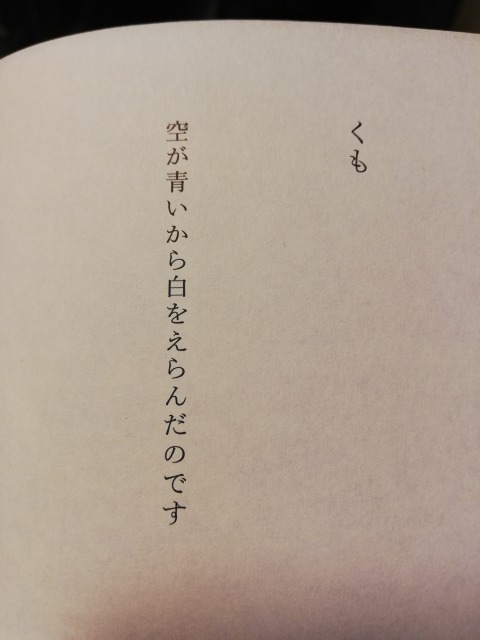 くも
空が青いから白をえらんだのです